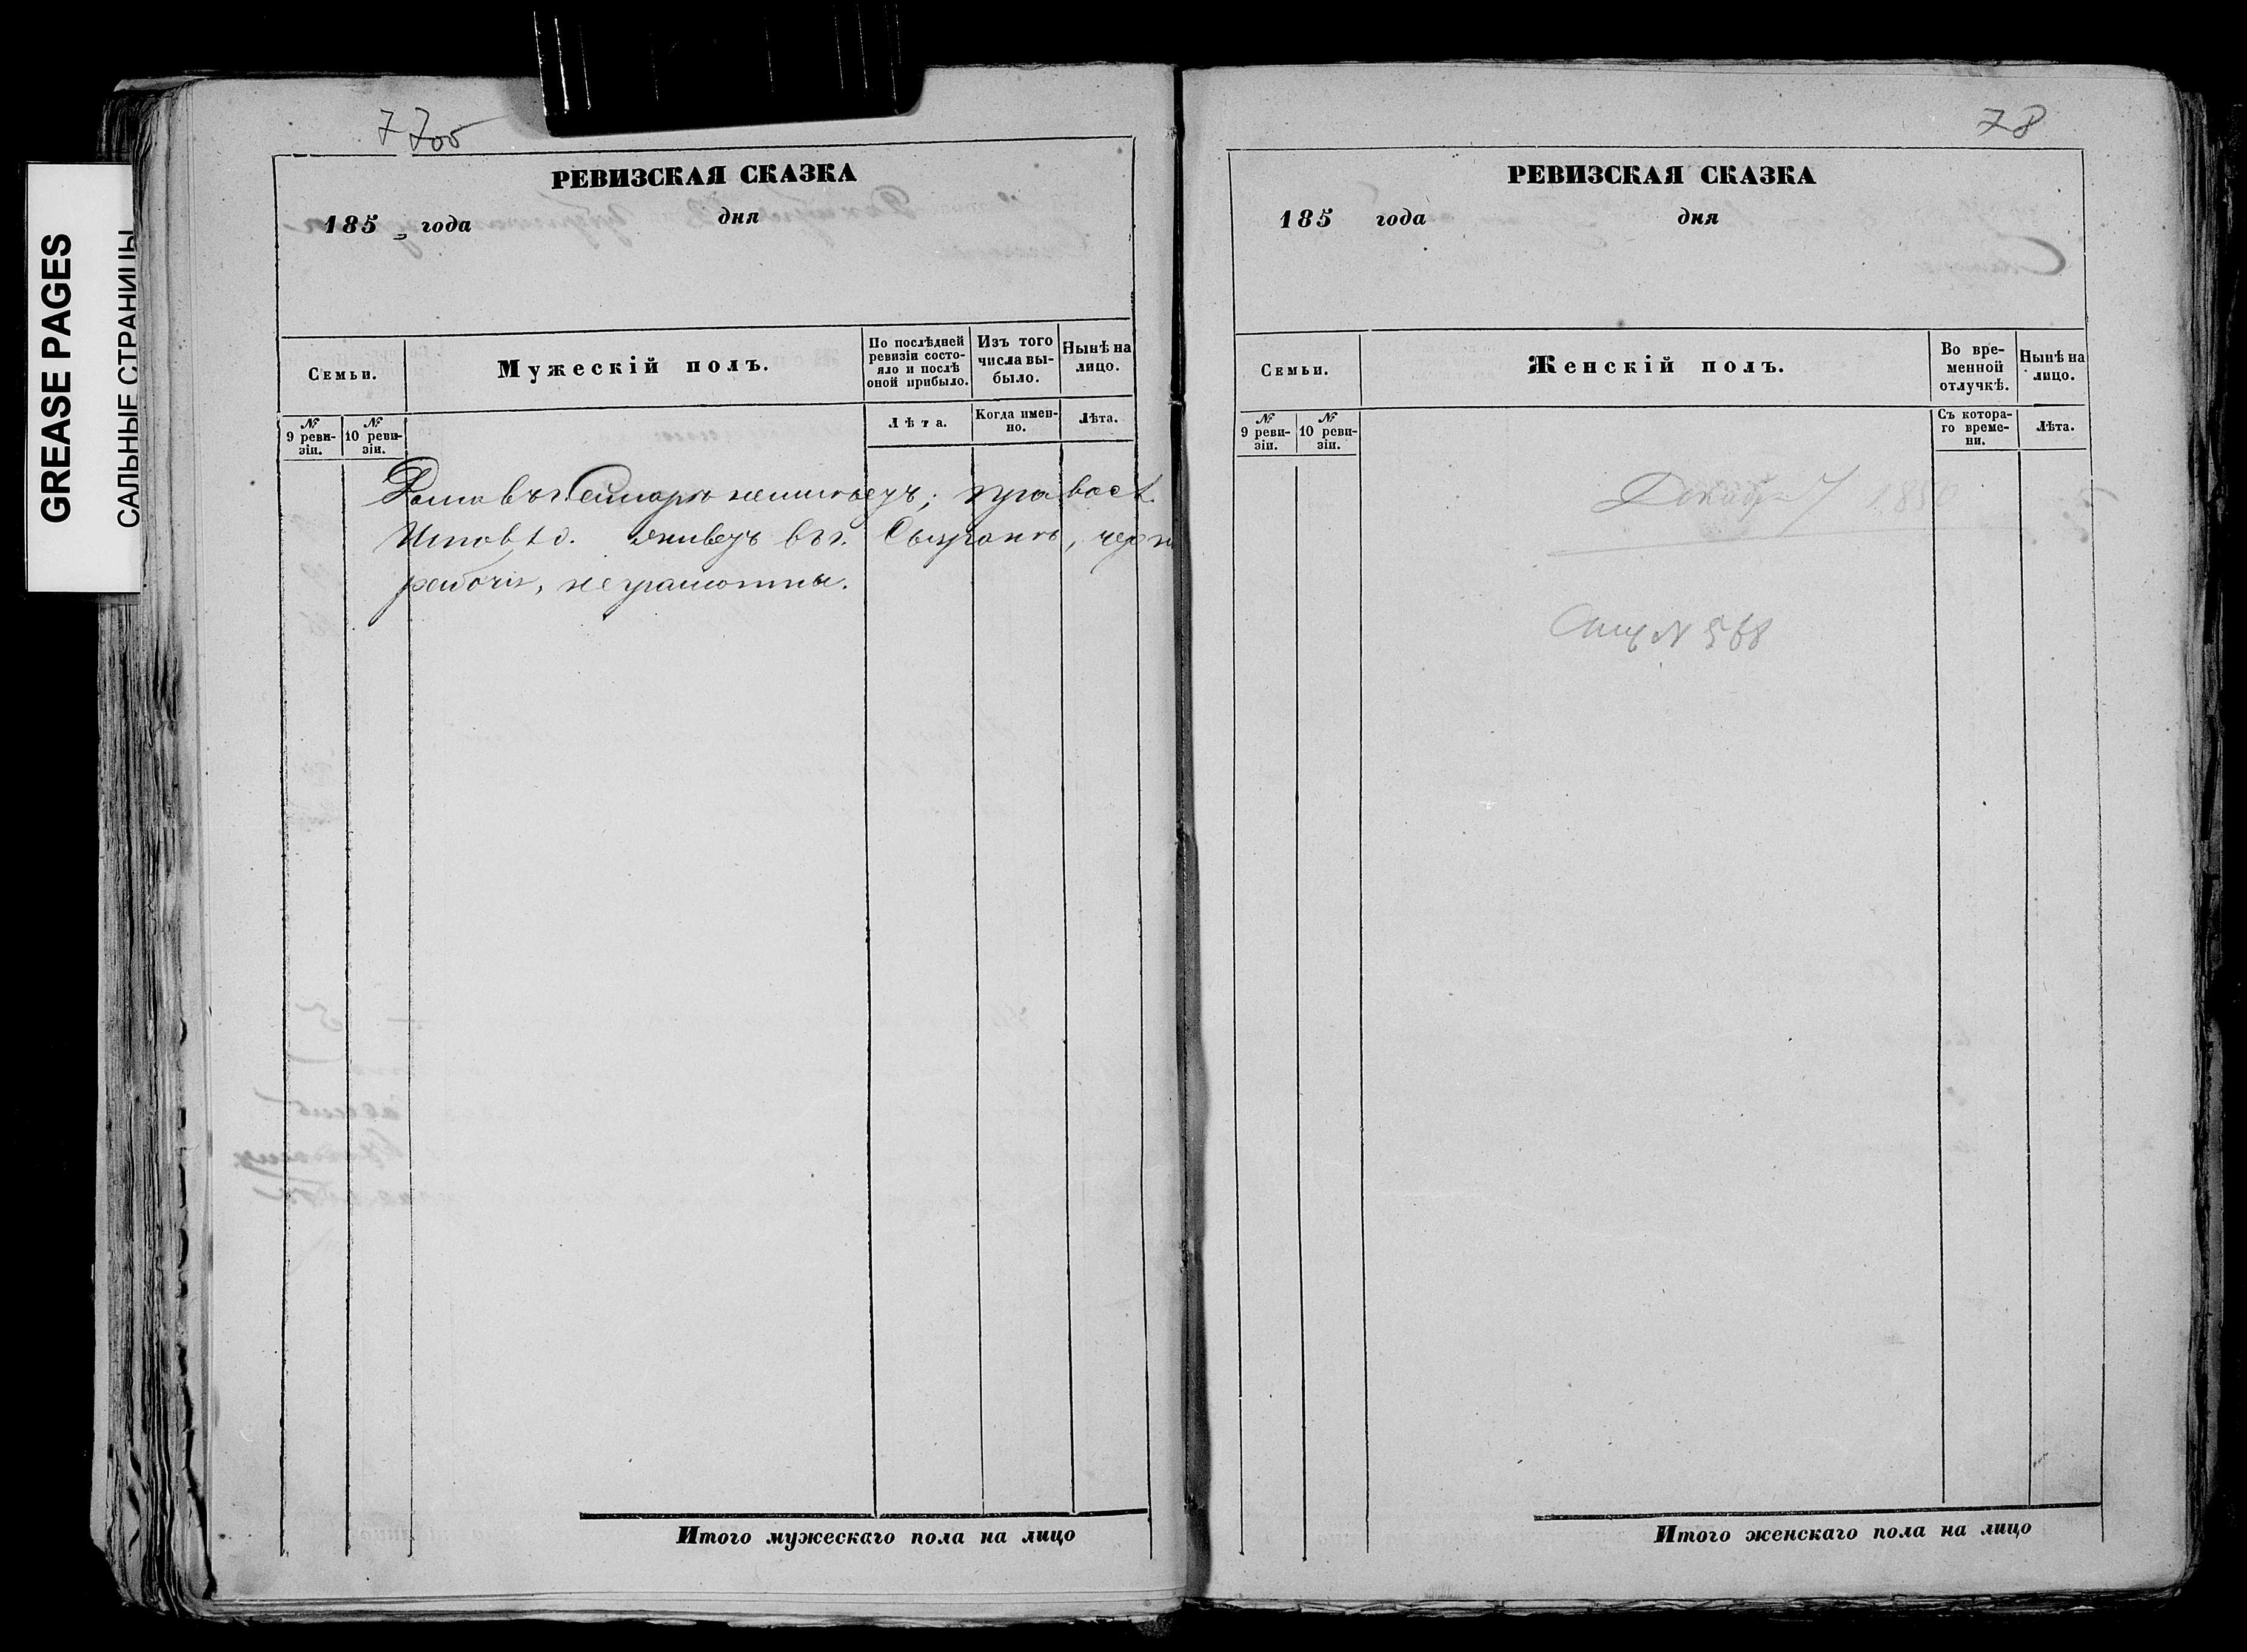 GREASE PAGES
САЛЬНЫЕ СТРАНИЦЫ
77об
РЕВИЗСКАЯ СКАЗКА
185 года дня
Семьи.
Мужескій полъ.
По послѣдней ревизіи состо-
яло и послѣ оной прибыло.
Изъ того числа вы-
было.
Нынѣ на лицо.
№ 9 реви-
зіи.
№ 10 реви-
зіи.
Лѣта.
Когда имен-
но.
Лѣта.
Домъ въ г. Самарѣ не имѣетъ;
живетъ въ г. Сызрани,
рабочій, неграмотны.
Итого мужескаго пола на лицо
78
РЕВИЗСКАЯ СКАЗКА
185 года дня
Семьи.
Женскій полъ.
Во вре-
менной отлучкѣ.
Нынѣ на лицо.
№ 9 реви-
зіи.
№ 10 реви-
зіи.
Съ котора-
го време-
ни.
Лѣта.
№ 568
Итого женскаго пола на лицо